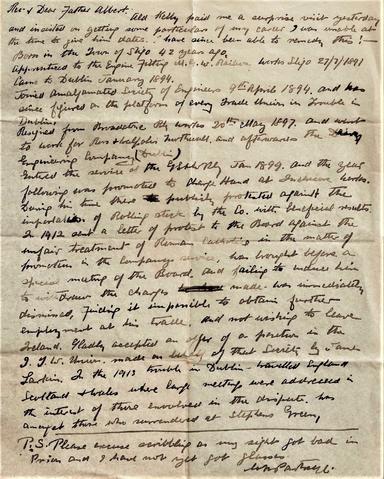 Rev. & Dear Father Albert.
Ald Kelly paid me a surprise visit yesterday
and insisted on getting some particulars of my career I was unable at
the time to give him dates. I have since been able to remedy this!
Born in the Town of Sligo 42 years ago.
Apprenticed to the Engine Fitting M. G. W. Railway Works Sligo 27/7/1891
Came to Dublin January 1894.
Joined Amalgamated Society of Engineers 9th April 1894, and has
since figured on the platform of every Trade Union in trouble in
Dublin.
Resigned from Broadstone Rly works 20th May 1897. and went
to work for and afterwards the
Engineering Company (Dublin)
Entered the service of the G.S.&W. Rly Jan 1899. and the year
following was promoted to Charge Hand at Inchicore works.
During his time there publicly protested against the
importation of Rolling stock by the Co. with beneficial results.
In 1912 sent a letter of protest to the Board against the
unfair treatment of Roman Catholics in the matter of
promotion in the Company's service, was brought before a
special meeting of the Board, and failing to induce him
to withdraw the charges made was immediately
dismissed, finding it impossible to obtain further
employment at his trade. and not wishing to leave
Ireland. Gladly accepted an offer of a position in the
I. T. W. Union. made on behalf of that Society by James
Larkin. In the 1913 trouble in Dublin travelled England
Scotland & Wales where large meetings were addressed in
the interest of those envolved in the dispute. was
amongst those who surrendered at Stephens Green,
P.S. Please excuse scribbling as my sight got bad in
Prison and I have not yet got glasses